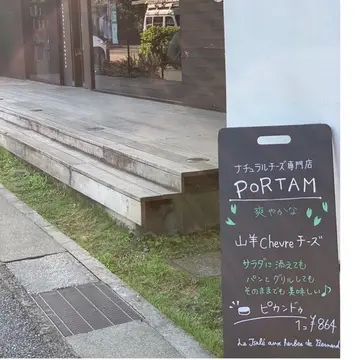 ナチュラルチーズ専門店
PORTAM
爽やかな
山羊Chevreチーズ
サラダに添えても
パンとグリルしても
そのままでも美味しい♪
ピカンドゥ
1コ¥864
aux herbes de